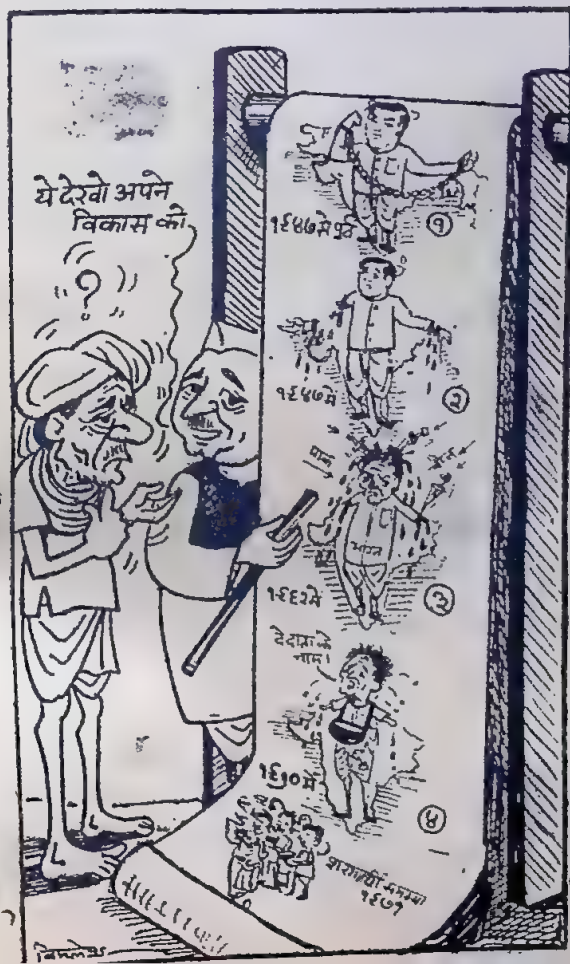 ये देखो अपने
विकास को
?
१९४७ से पूर्व
१
१९४७ में
२
भारत
१९६२ में
३
दे दाता के
नाम।
१९७० में
४
शरणार्थी समस्या
१९७१